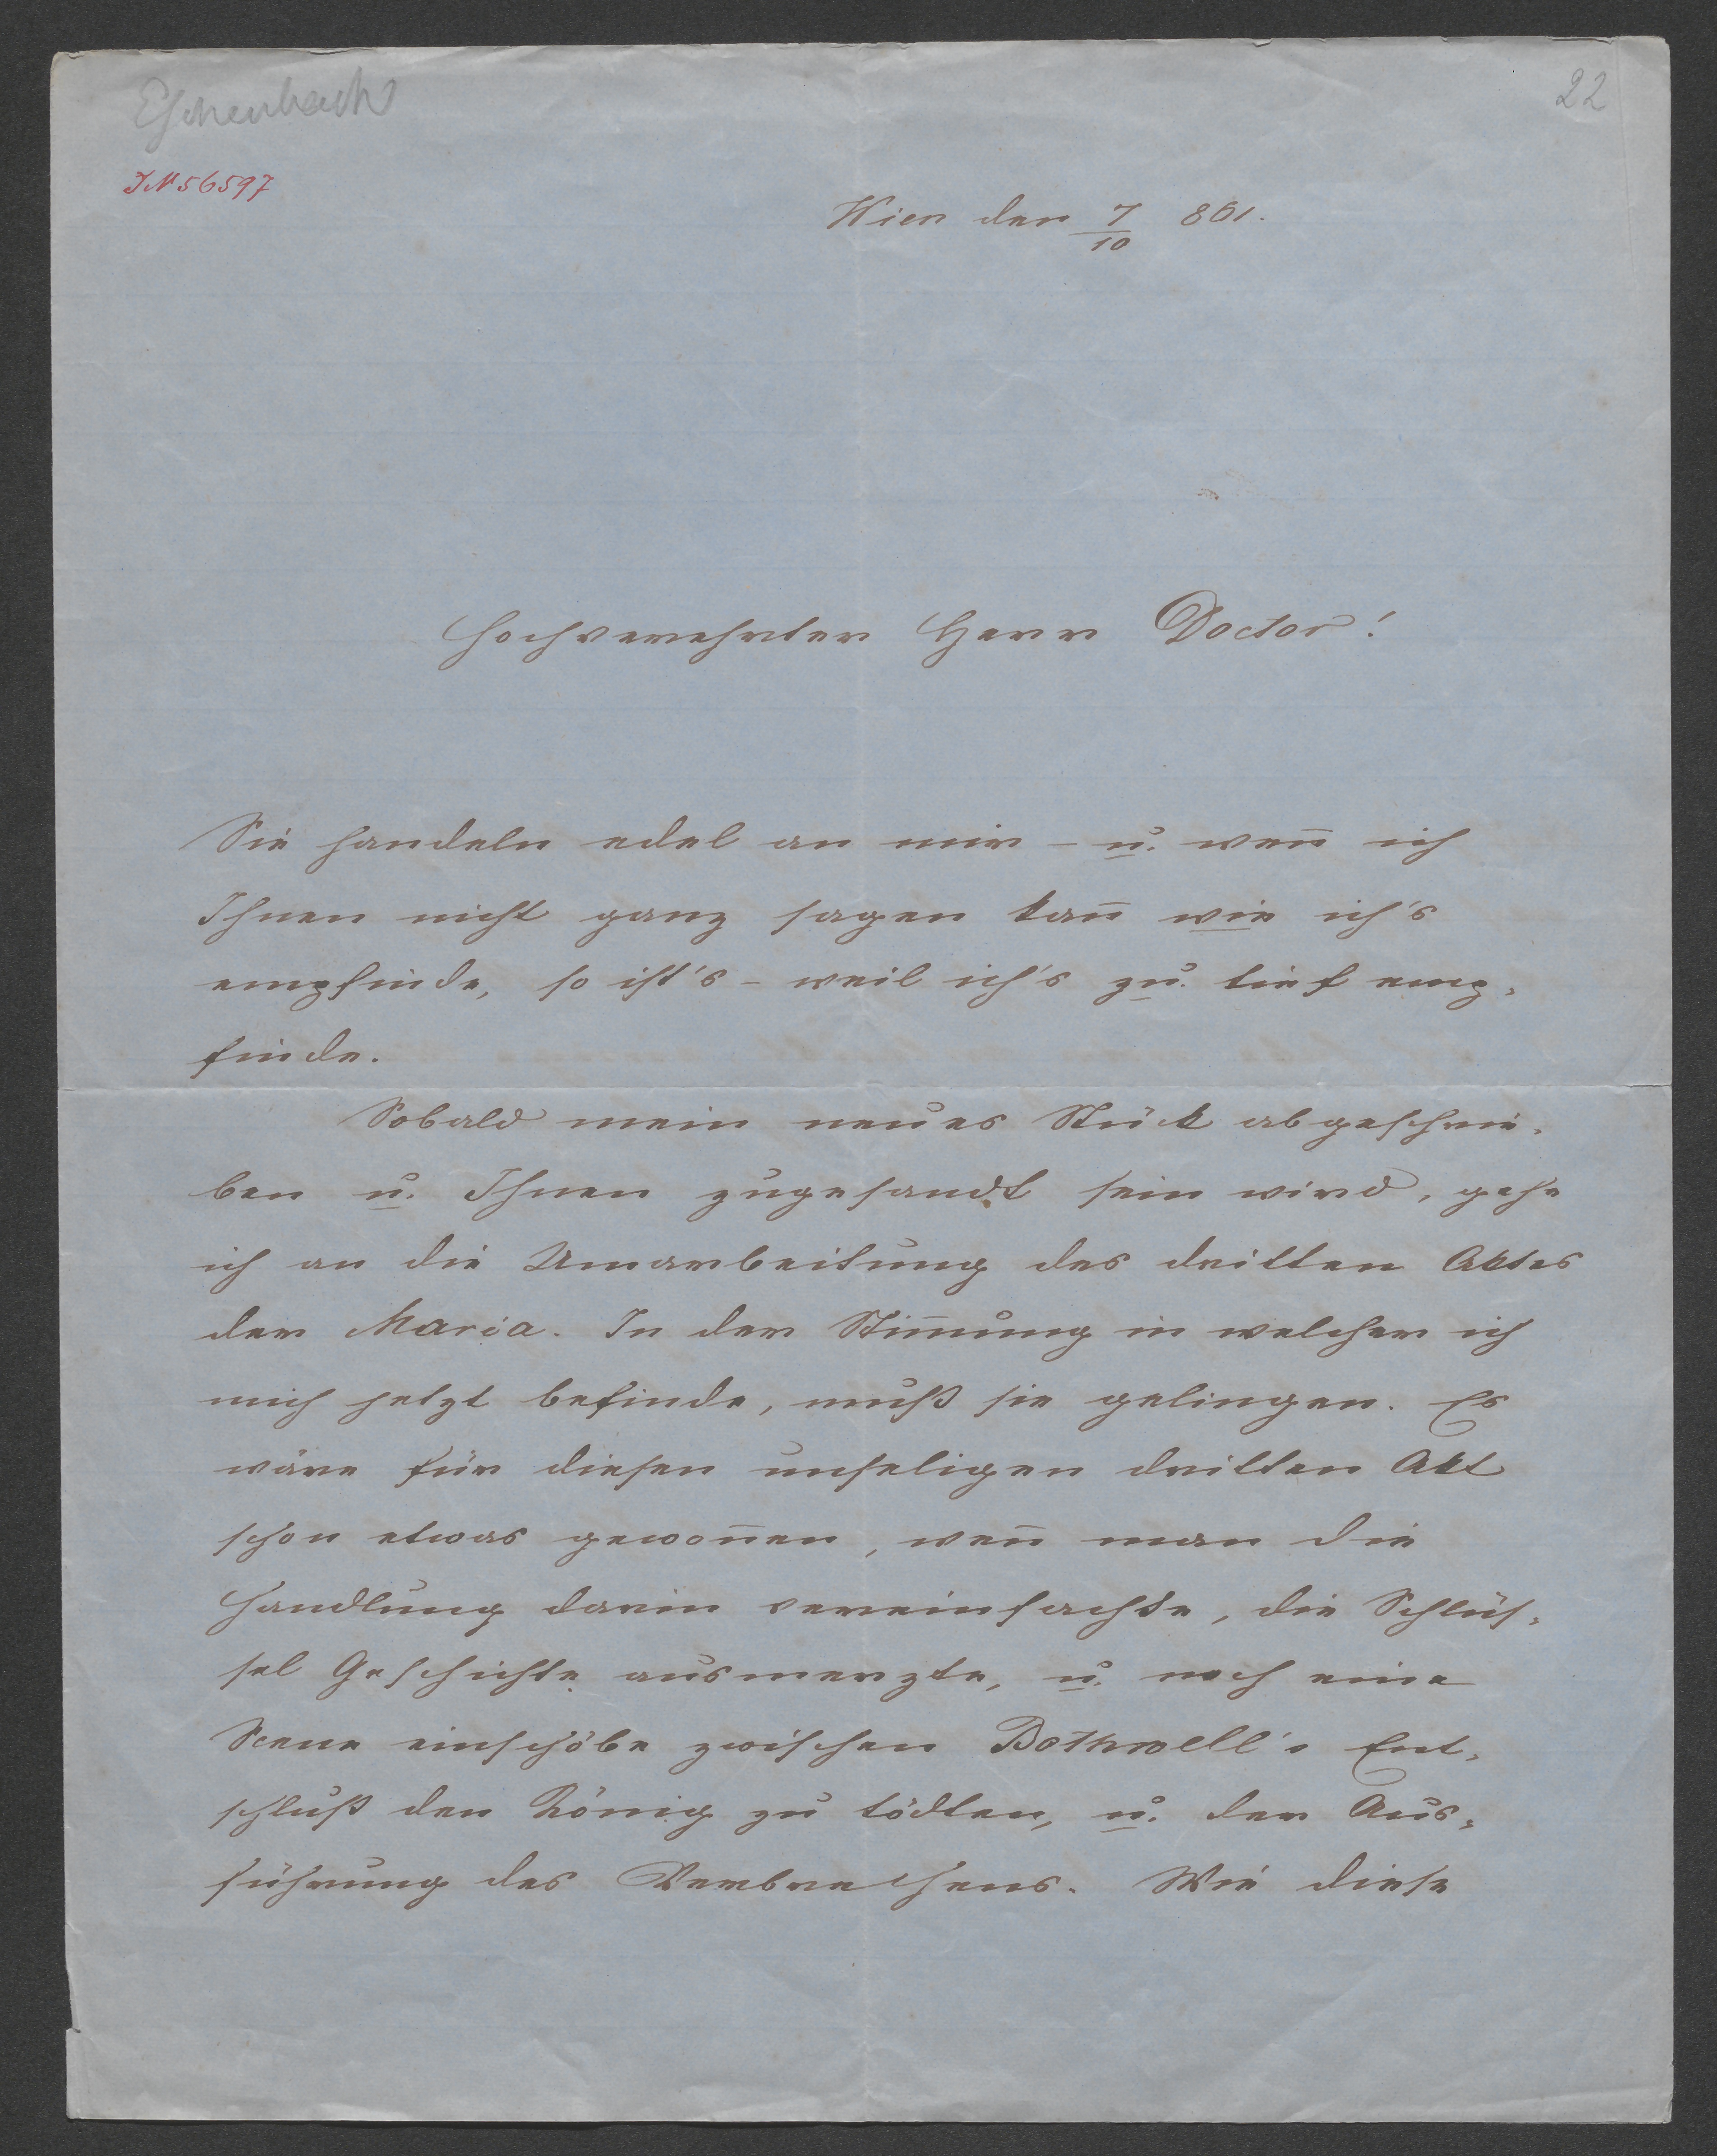 Eschenbach
22
IN 56597
Wien den 7/10 861.
Hochverehrter Herr Doctor!
Sie handeln edel an mir – u. wen̄ ich
Ihnen nicht ganz sagen kan̄ wie ich's
empfinde, so ist's – weil ich's zu tief emp-
finde.
Sobald mein neues Stück abgeschrie-
ben u. Ihnen zugesandt sein wird, gehe
ich an die Umarbeitung des dritten Aktes
der Maria. In der Stim̄ung in welcher ich
mich jetzt befinde, muß sie gelingen. Es
wäre für diesen unseligen dritten Akt
schon etwas gewon̄en, wen̄ man die
Handlung darin vereinfachte, die Schlüs-
sel Geschichte ausmerzte, u. noch eine
Scene einschöbe zwischen Bothwell's Ent-
schluß den König zu tödten, u. der Aus-
führung des Verbrechens. Wie diese